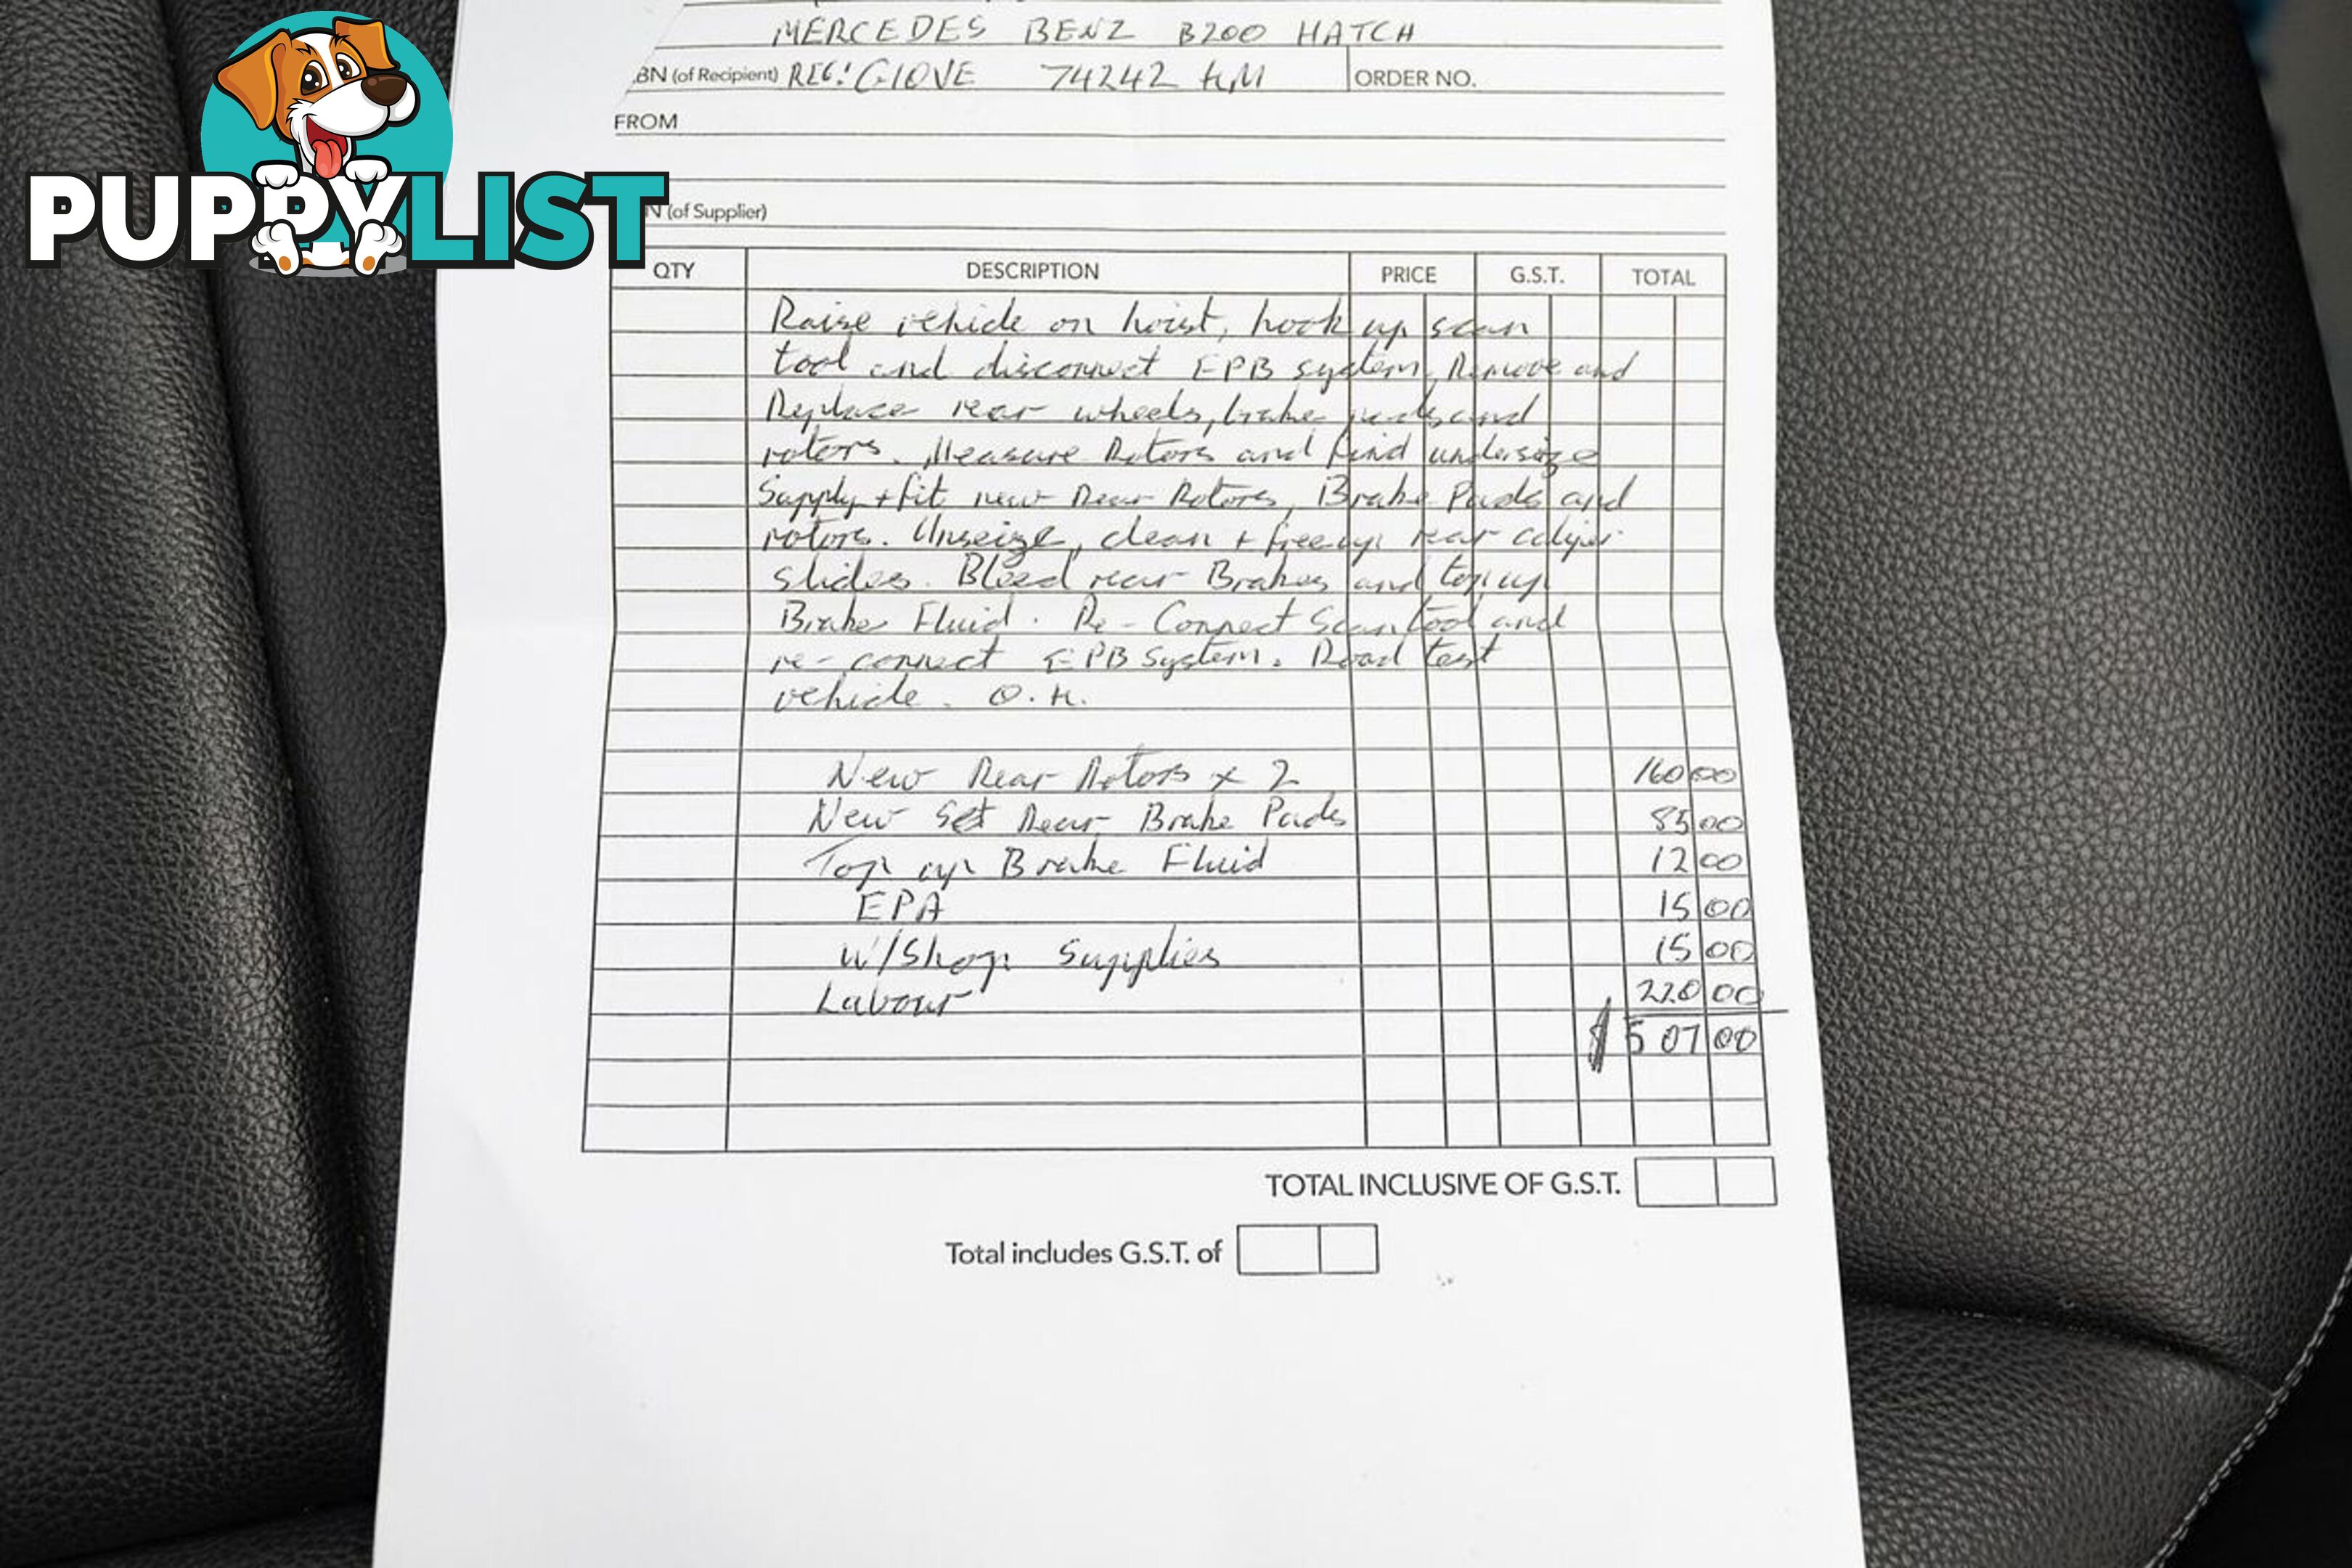 PUPPYLIST
MERCEDES BENZ B200 HATCH
BN (of Recipient) REG: 74242 KM ORDER NO.
FROM
N (of Supplier)
QTY DESCRIPTION PRICE G.S.T. TOTAL
Raise vehicle on hoist, hook up scan
tool and disconnect EPB system, Remove and
Replace rear wheels, brake pads and
rotors. Measure Rotors and find undersize
Supply + fit new Rear Rotors, Brake Pads and
rotors. Unseize, clean + free up rear caliper
slides. Bleed rear Brakes and top up
Brake Fluid. Re-Connect Scan tool and
re-connect EPB System. Road test
vehicle. O.K.
New Rear Rotors x 2 160 00
New Set Rear Brake Pads 85 00
Top up Brake Fluid 12 00
EPA 15 00
W/Shop Supplies 15 00
Labour 220 00
$ 507 00
TOTAL INCLUSIVE OF G.S.T.
Total includes G.S.T. of